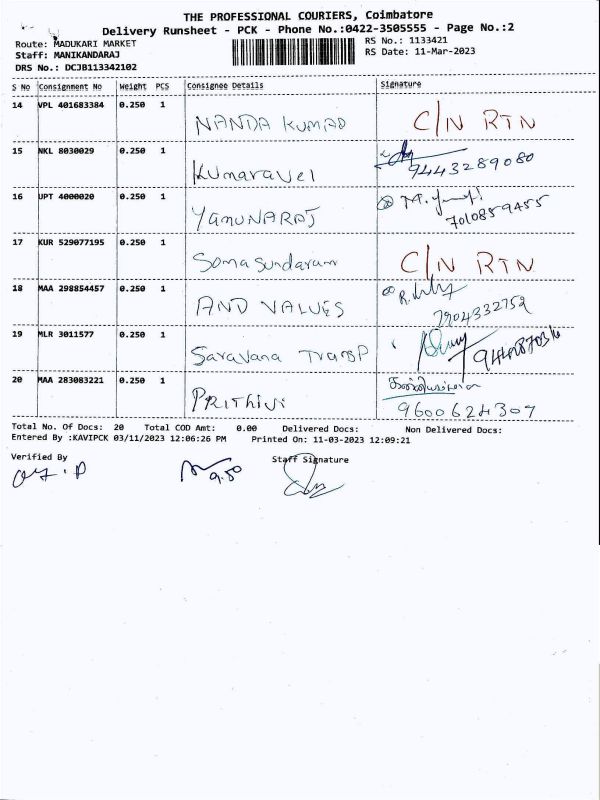 THE PROFESSIONAL COURIERS, Coimbatore
Delivery Runsheet - PCK - Phone No.:0422-3505555 - Page No.:2
Route: MADUKARI MARKET
Staff: MANIKANDARAJ
DRS No.: DCJB113342102
RS No.: 1133421
RS Date: 11-Mar-2023
S No Consignment No Weight PCS Consignee Details Signature
14 VPL 401683384 0.250 1 NANDA KUMAR C/N RTN
15 NKL 8030029 0.250 1 Kumaravel 9443289080
16 UPT 4000020 0.250 1 YAMUNARAJ 7010859455
17 KUR 529077195 0.250 1 Somasundaram C/N RTN
18 MAA 298854457 0.250 1 AND VALUES 7904332752
19 MLR 3011577 0.250 1 Saravana Transp
20 MAA 283083221 0.250 1 PRithivi 9600624307
Total No. Of Docs: 20 Total COD Amt: 0.00 Delivered Docs: Non Delivered Docs:
Entered By :KAVIPCK 03/11/2023 12:06:26 PM Printed On: 11-03-2023 12:09:21
Verified By Staff Signature
9.50